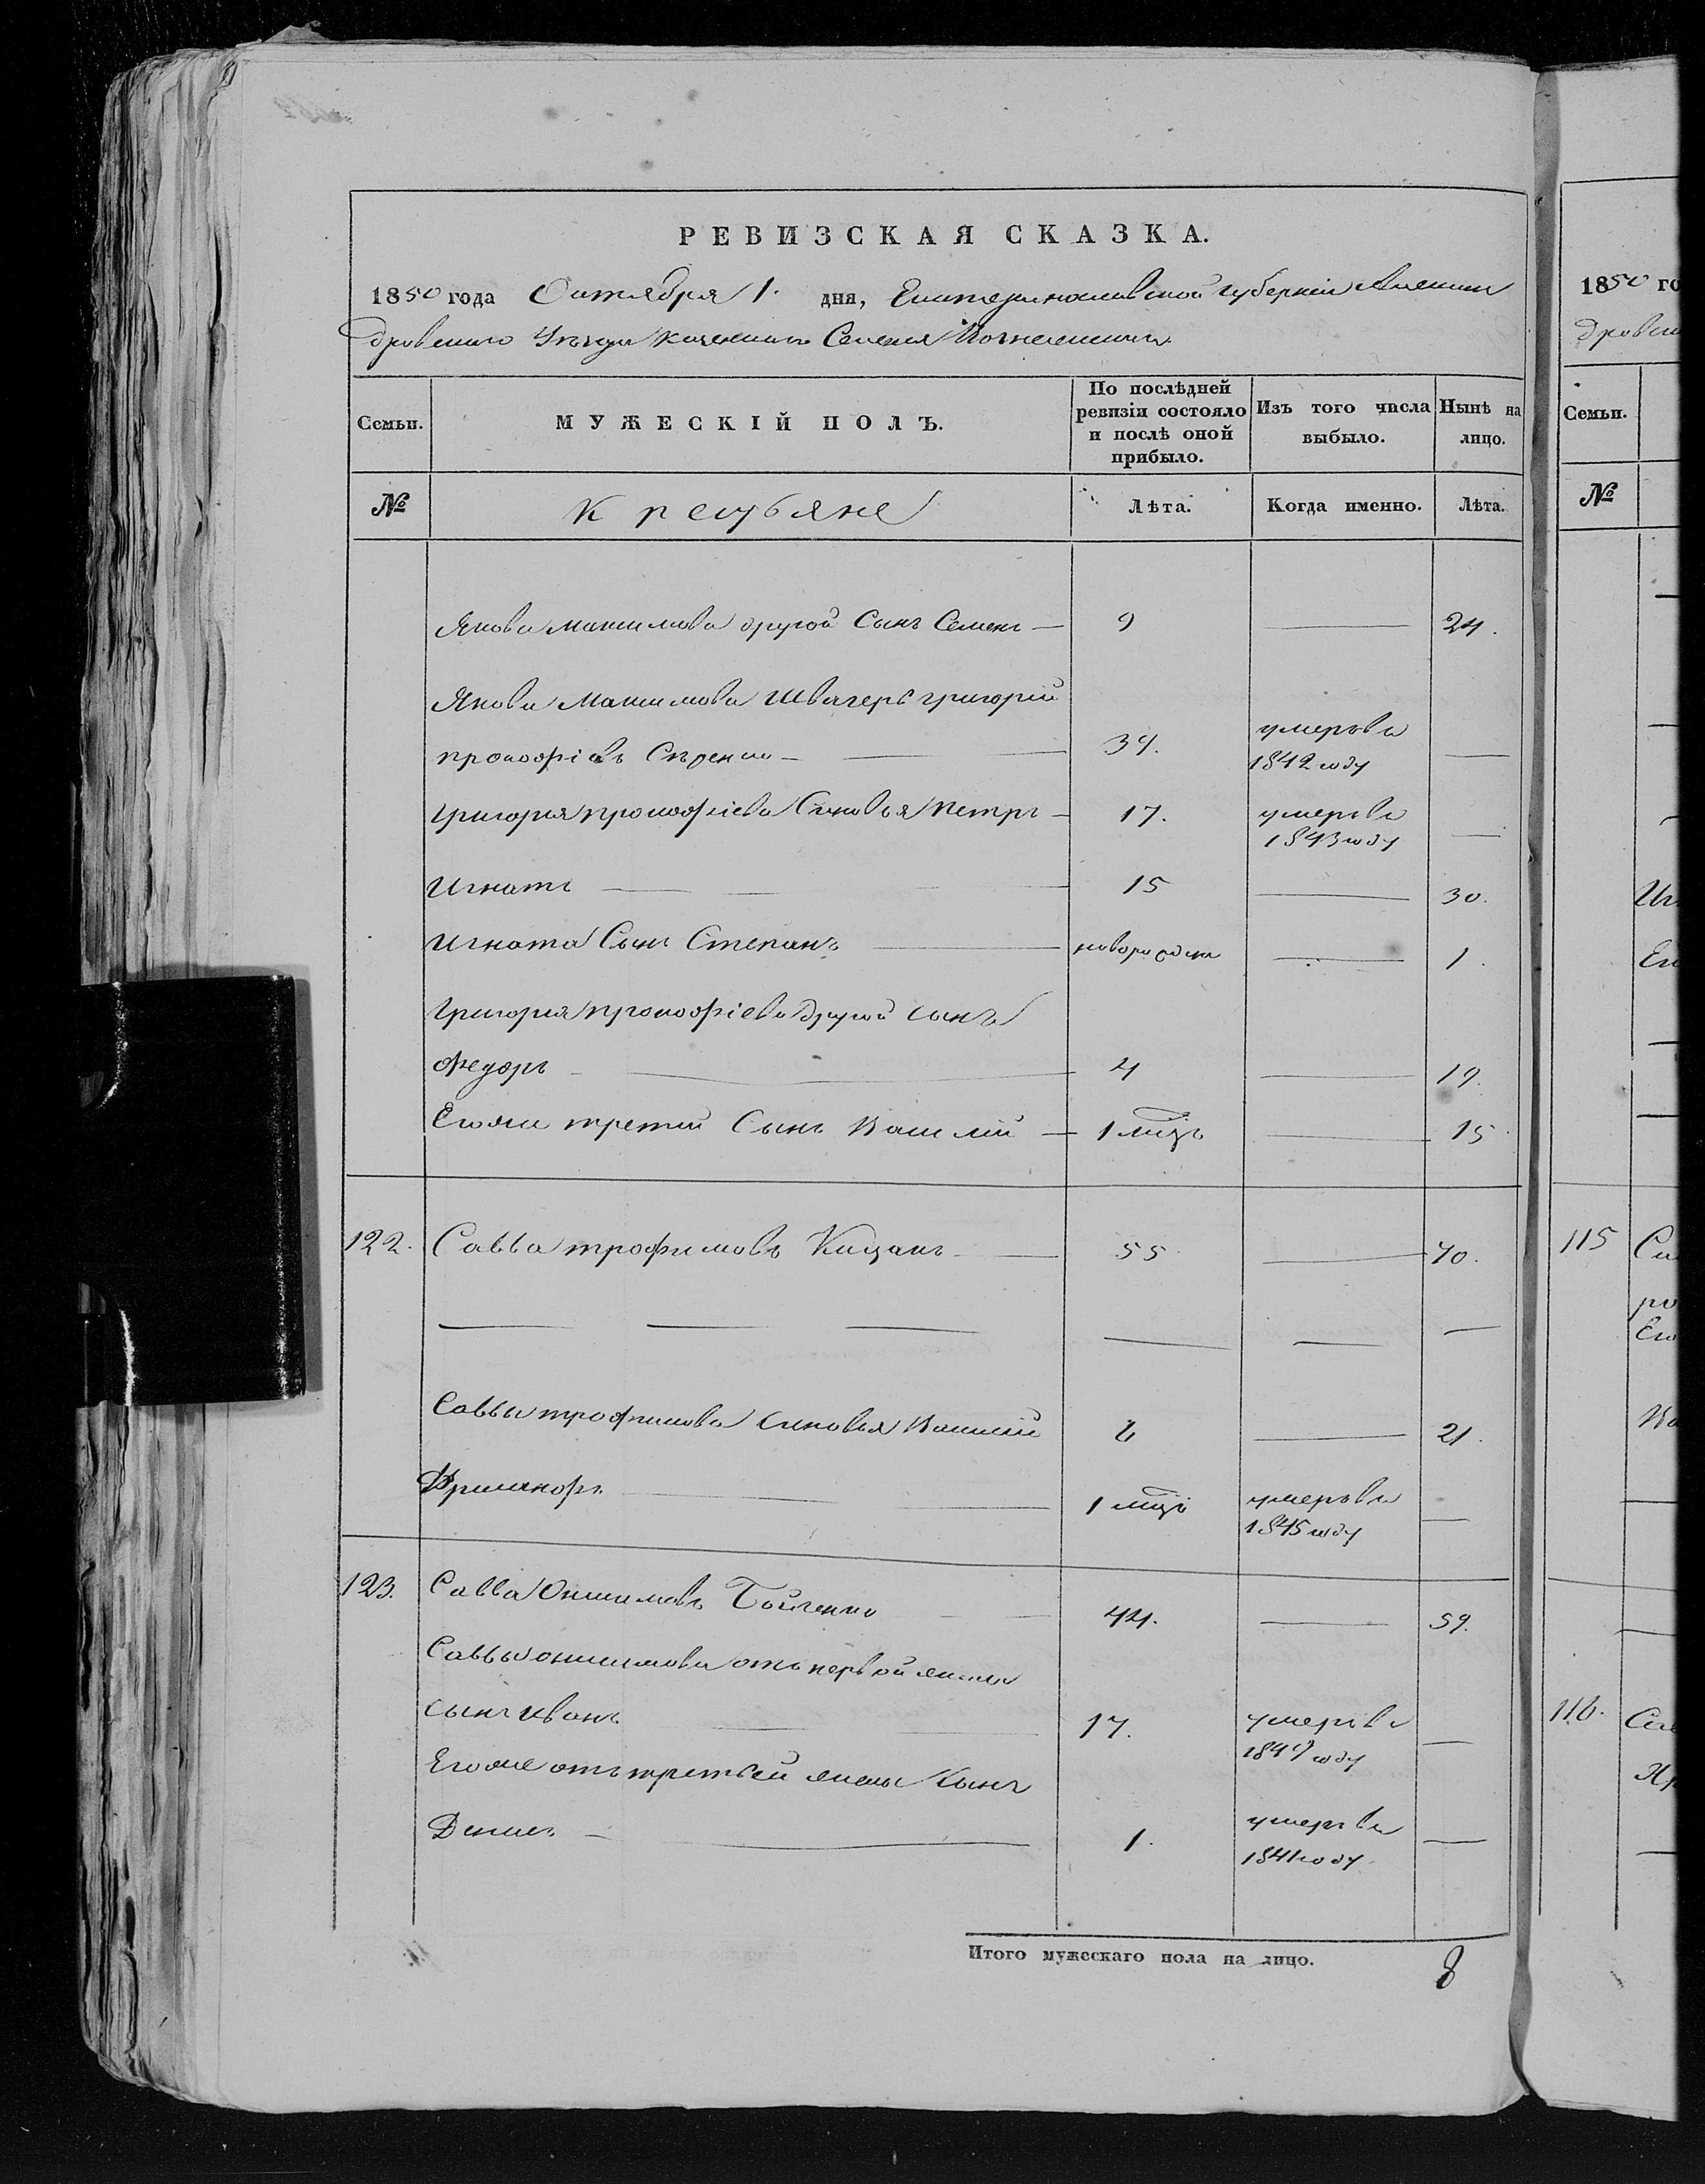 РЕВИЗСКАЯ СКАЗКА.
1850 года Октября 1. дня, Екатеринославской губернии Алексан
дровскаго Уезда Казеннаго Селения Вознесенки
Семьи.
МУЖЕСКІЙ ПОЛЪ.
По послѣдней ревизіи состояло и послѣ оной прибыло.
Изъ того числа выбыло.
Нынѣ на лицо.
№
Лѣта.
Когда именно.
Лѣта.
Якова Максимова другой Сынъ Семенъ — 9 — 24.
Якова Максимова Швагеръ григорій
прокофіевъ — 39. умеръ въ 1842 году —
григорія прокофіева Сыновья Петръ — 17. умеръ въ 1843 году —
Игнатъ — 15 — 30.
Игната Сынъ Степанъ — новорожден — 1.
Григорія прокофіева другой сынъ
Федоръ — 4 — 19.
Егоже третий Сынъ Василій — 1 мцъ — 15
122. Савва трофимовъ — 55 — 70.
— — — — — —
Саввы трофимова сыновья Василій 6 — 21.
1 мцъ умеръ въ 1845 году —
123. Савва Онисимовъ Бойченко — 44. — 59.
Саввы онисимова отъ первой жены
сынъ иванъ — 17. умеръ въ 1849 году —
Егоже отъ третьей жены сынъ
Денисъ — 1. умеръ въ 1841 году —
Итого мужескаго пола на лицо. 8
1850 го
дровск
Семьи.
№
115
116.